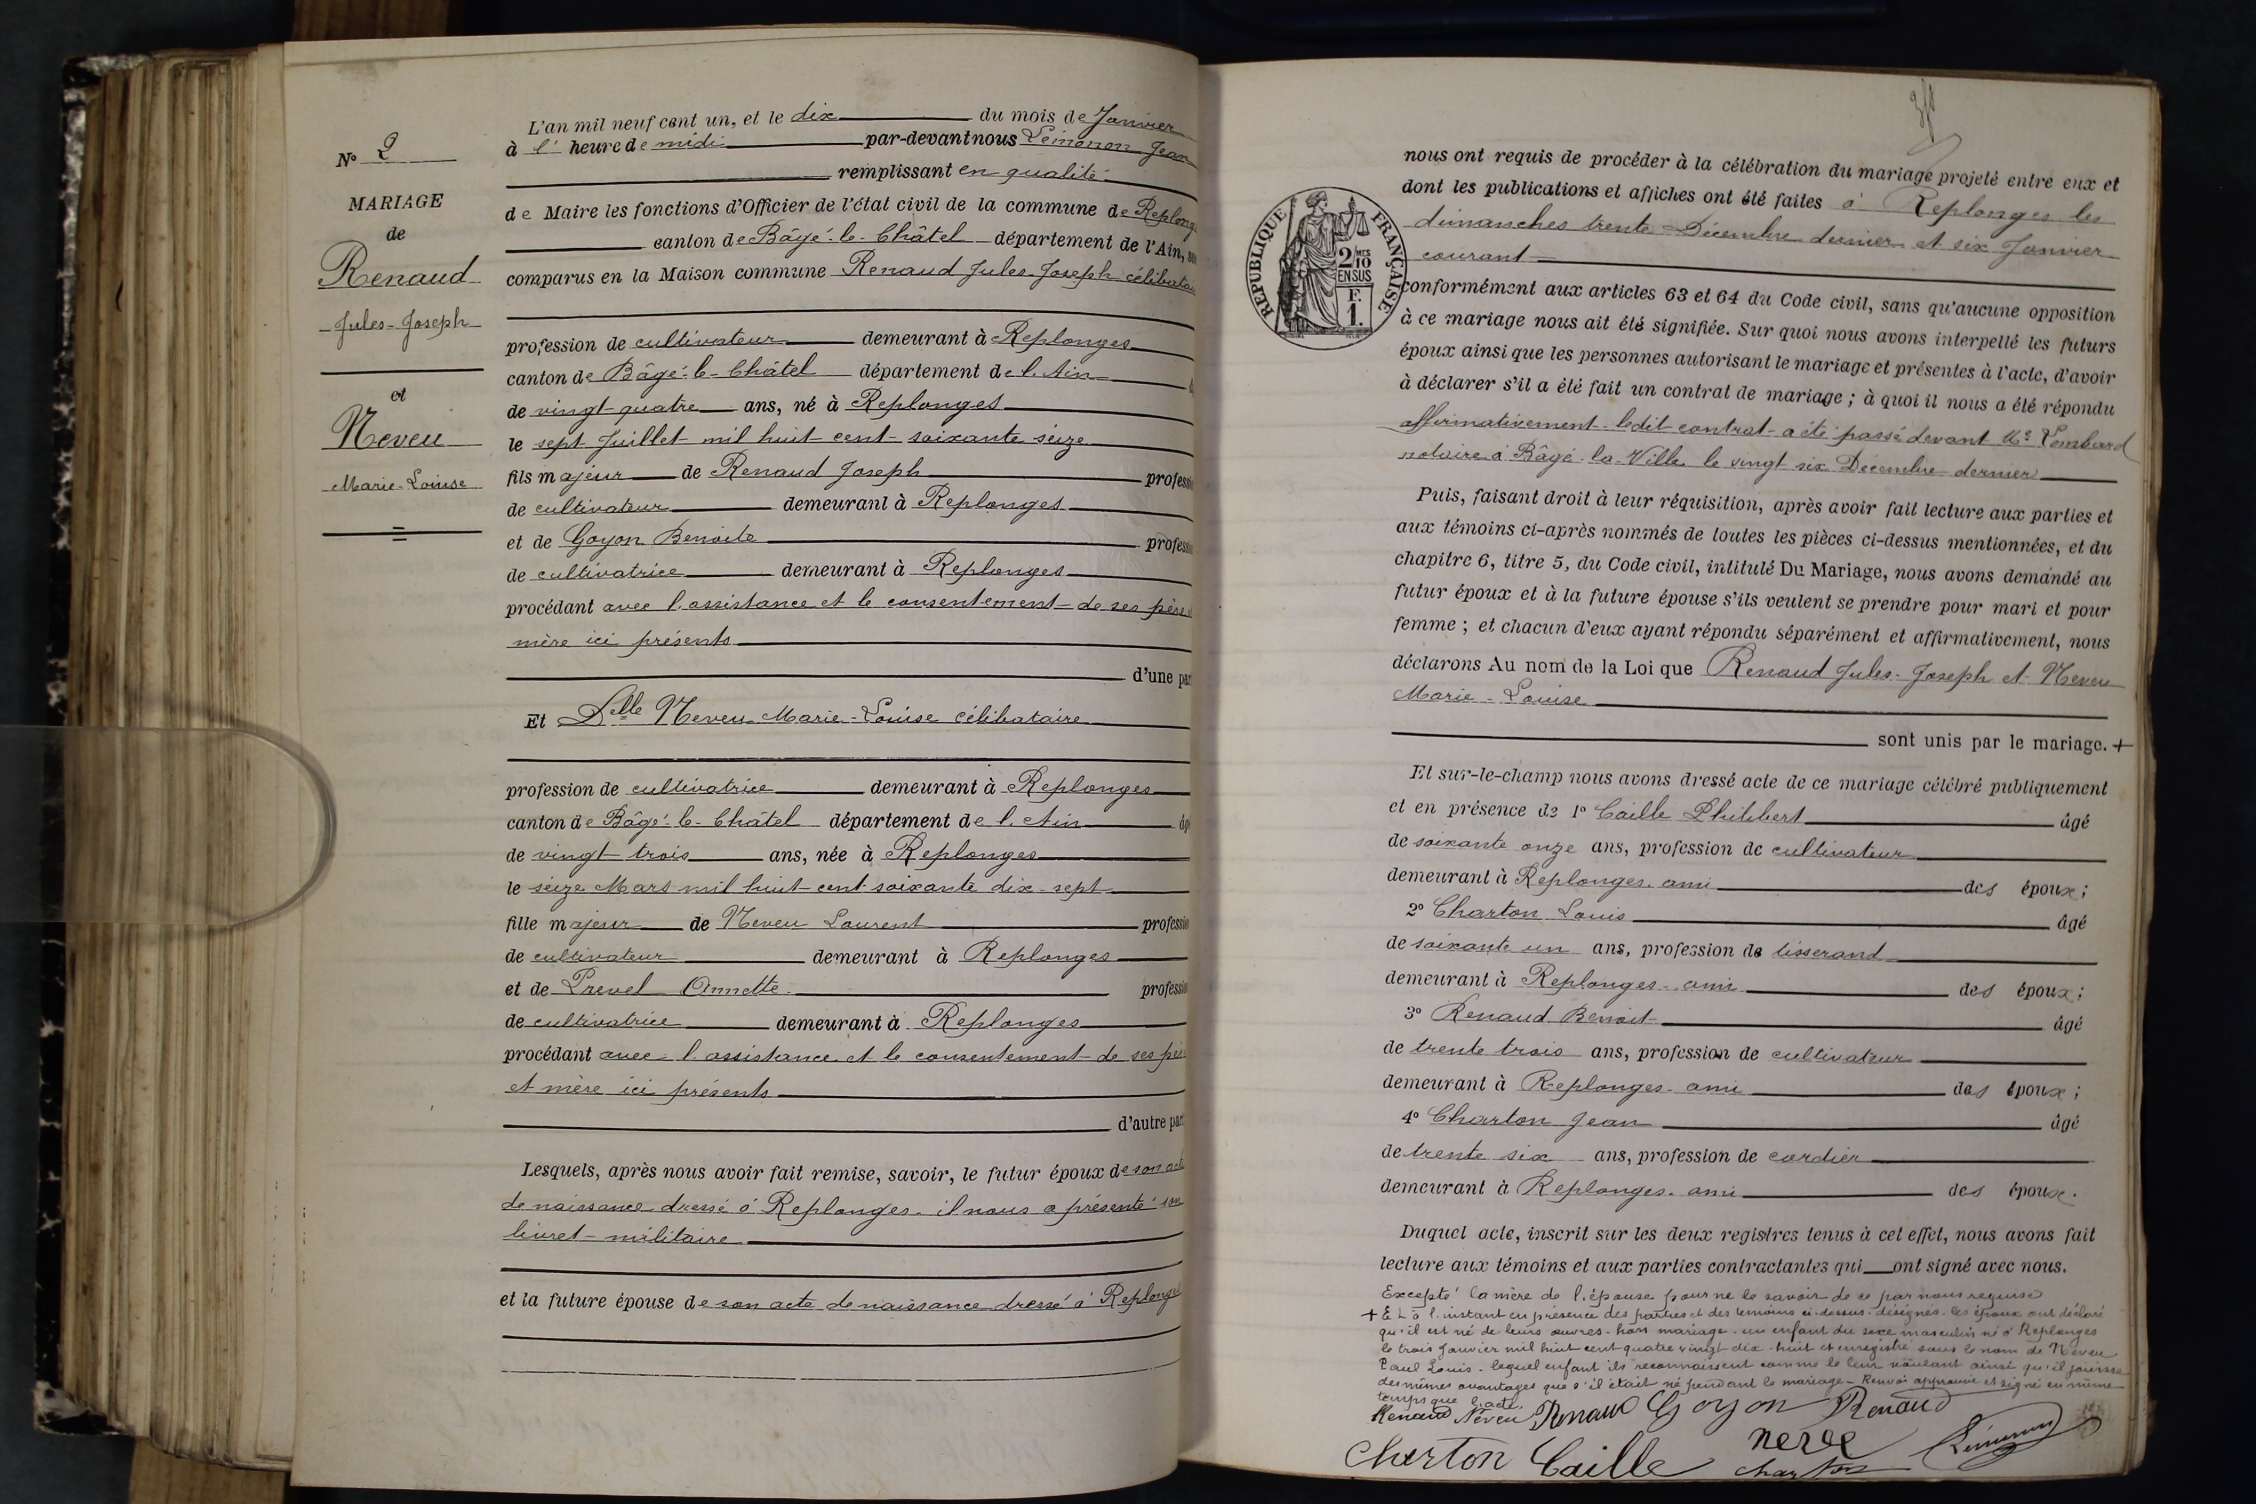 L'an mil neuf cent un, et le dix du mois de Janvier
à l' heure de midi par-devant nous Lémonon Jean
remplissant en qualité
de Maire les fonctions d'Officier de l'état civil de la commune de Replonges
canton de Bâgé-le-Châtel département de l'Ain, so
comparus en la Maison commune Renaud Jules-Joseph célibatai
profession de cultivateur demeurant à Replonges
canton de Bâgé-le-Châtel département de l'Ain
de vingt-quatre ans, né à Replonges
le sept Juillet mil huit cent soixante seize
fils majeur de Renaud Joseph professi
de cultivateur demeurant à Replonges
et de Goyon Benoite professi
de cultivatrice demeurant à Replonges
procédant avec l'assistance et le consentement de ses père
mère ici présents
d'une par
N° 2
MARIAGE
de
Renaud
Jules-Joseph
et
Neveu
Marie-Louise
Et Delle Neveu Marie-Louise célibataire
profession de cultivatrice demeurant à Replonges
canton de Bâgé-le-Châtel département de l'Ain âg
de vingt trois ans, née à Replonges
le seize Mars mil huit cent soixante dix-sept
fille majeur de Neveu Laurent profession
de cultivateur demeurant à Replonges
et de Prevel Annette professio
de cultivatrice demeurant à Replonges
procédant avec l'assistance et le consentement de ses pèr
et mère ici présents
d'autre par
Lesquels, après nous avoir fait remise, savoir, le futur époux de son acte
de naissance dressé à Replonges. il nous a présenté son
livret militaire
et la future épouse de son acte de naissance dressé à Replonges
nous ont requis de procéder à la célébration du mariage projeté entre eux et
dont les publications et affiches ont été faites à Replonges les
dimanches trente Décembre dernier et six Janvier
courant
RÉPUBLIQUE FRANÇAISE
2 MES
10
EN SUS
F.
1.
conformément aux articles 63 et 64 du Code civil, sans qu'aucune opposition
à ce mariage nous ait été signifiée. Sur quoi nous avons interpellé les futurs
époux ainsi que les personnes autorisant le mariage et présentes à l'acte, d'avoir
à déclarer s'il a été fait un contrat de mariage ; à quoi il nous a été répondu
affirmativement. ledit contrat a été passé devant Me Lombard
notaire à Bâgé-la-Ville le vingt six Décembre dernier
Puis, faisant droit à leur réquisition, après avoir fait lecture aux parties et
aux témoins ci-après nommés de toutes les pièces ci-dessus mentionnées, et du
chapitre 6, titre 5, du Code civil, intitulé Du Mariage, nous avons demandé au
futur époux et à la future épouse s'ils veulent se prendre pour mari et pour
femme ; et chacun d'eux ayant répondu séparément et affirmativement, nous
déclarons Au nom de la Loi que Renaud Jules-Joseph et Neveu
Marie-Louise
sont unis par le mariage. +
Et sur-le-champ nous avons dressé acte de ce mariage célébré publiquement
et en présence de 1° Caille Philibert âgé
de soixante onze ans, profession de cultivateur
demeurant à Replonges. ami des époux ;
2° Charton Louis âgé
de soixante un ans, profession de tisserand
demeurant à Replonges. ami des époux ;
3° Renaud Benoit âgé
de trente trois ans, profession de cultivateur
demeurant à Replonges. ami des époux ;
4° Charton Jean âgé
de trente six ans, profession de cordier
demeurant à Replonges. ami des époux.
Duquel acte, inscrit sur les deux registres tenus à cet effet, nous avons fait
lecture aux témoins et aux parties contractantes qui ont signé avec nous.
Excepté la mère de l'épouse pour ne le savoir de ce par nous requise
+ Et à l'instant en présence des parties et des témoins ci-dessus désignés. les époux ont déclaré
qu'il est né de leurs œuvres hors mariage un enfant du sexe masculin né à Replonges
le trois Janvier mil huit cent quatre vingt dix huit et enregistré sous le nom de Neveu
Paul Louis. lequel enfant ils reconnaissent comme le leur voulant ainsi qu'il jouisse
des mêmes avantages que s'il était né pendant le mariage - Renvoi approuvé et signé en même
temps que l'acte.
Renaud Neveu Renaud Goyon Renaud
Charton Caille neveu Lémonon
charton